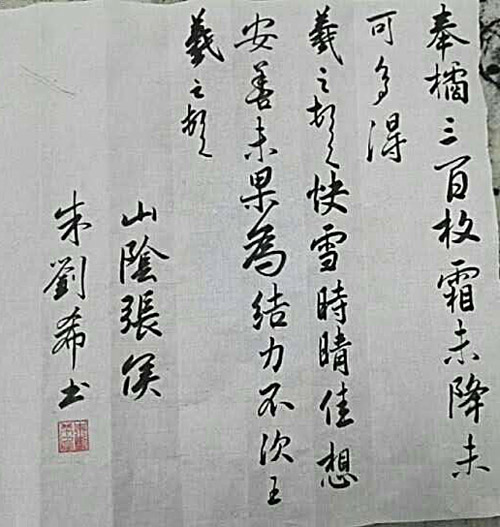 奉橘三百枚霜未降未
可多得
羲之頓首快雪時晴佳想
安善未果為結力不次王
羲之頓首
山陰張侯
朱劉希书